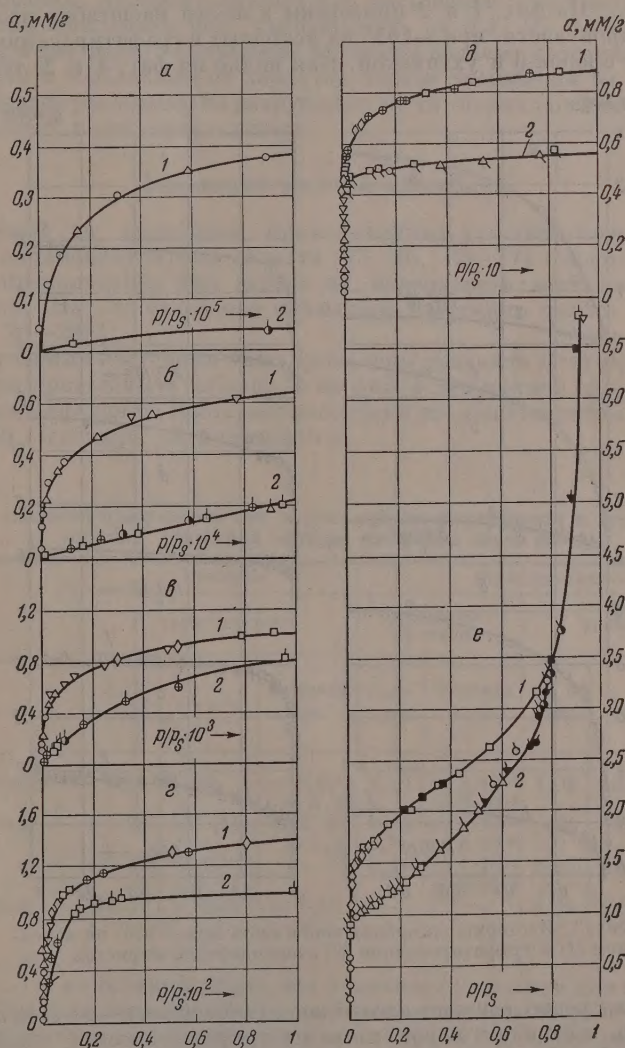 a, мМ/г
a, мМ/г
а
0,5
0,4
0,3
0,2
0,1
0
1
2
p/pₛ·10⁵
б
0,6
0,2
0
1
2
p/pₛ·10⁴
в
1,2
0,8
0,4
0
1
2
p/pₛ·10³
г
1,6
1,2
0,8
0,4
0
1
2
p/pₛ·10²
0,2 0,4 0,6 0,8 1
д
1
2
0,8
0,6
0,4
0,2
0
p/pₛ·10
е
1
2
6,5
6,0
5,5
5,0
4,5
4,0
3,5
3,0
2,5
2,0
1,5
1,0
0,5
p/pₛ
0 0,2 0,4 0,6 0,8 1